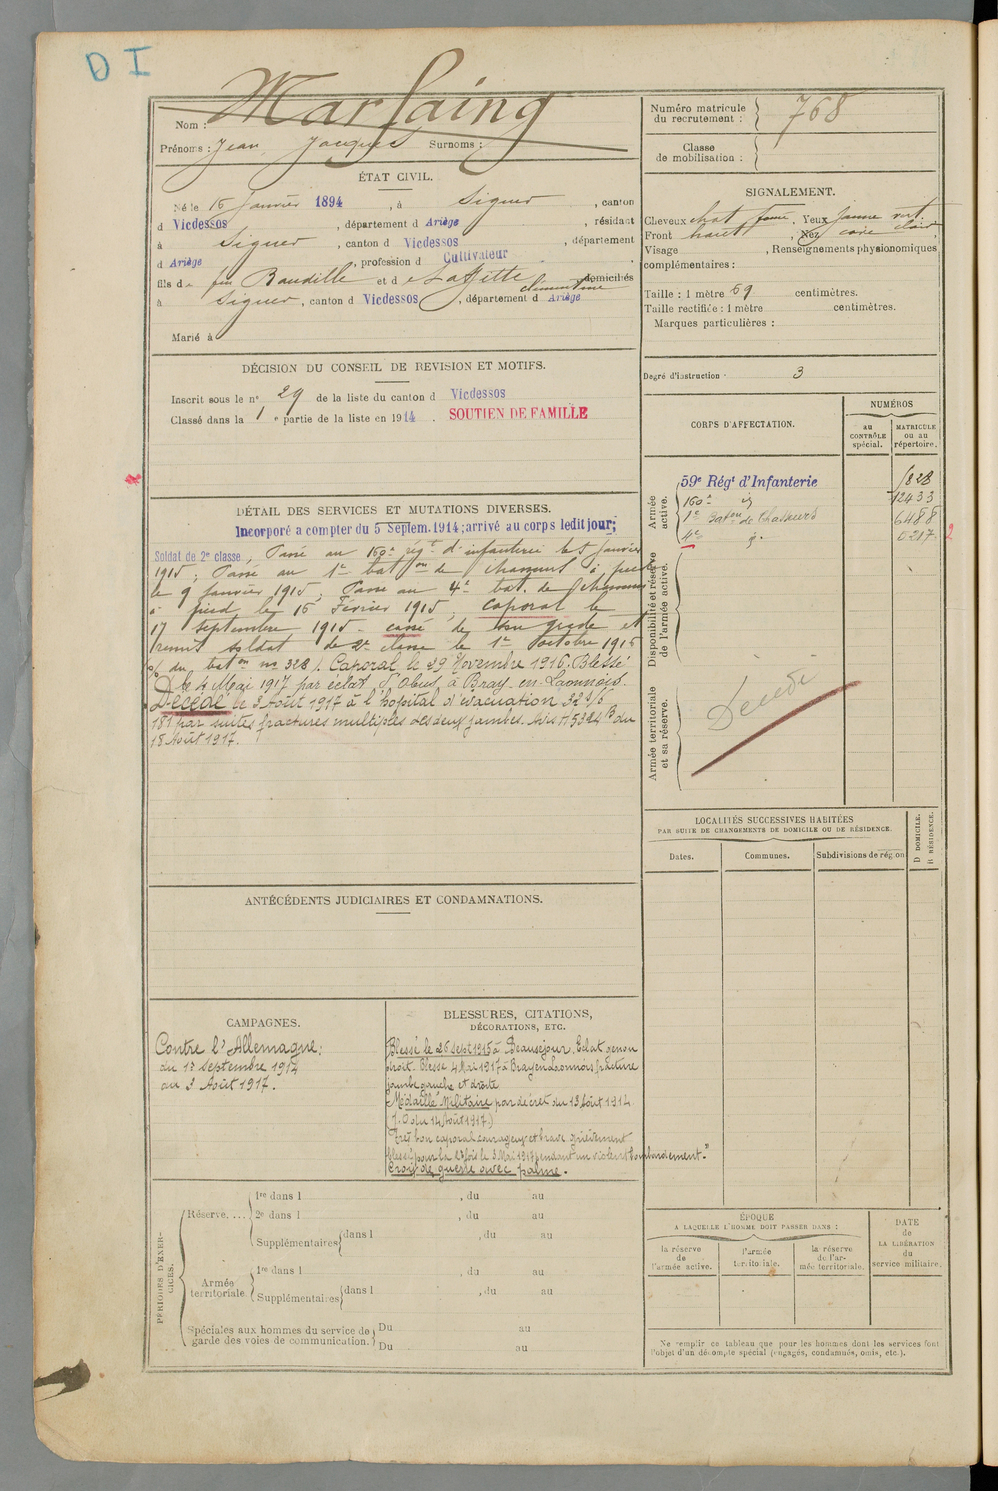 D I
Nom : Marfaing
Prénoms : Jean Jacques Surnoms :
ÉTAT CIVIL.
Né le 16 Janvier 1894, à Siguer, canton
d Vicdessos, département d Ariège, résidant
à Siguer, canton d Vicdessos, département
d Ariège, profession d Cultivateur
fils d e feu Baudille et d e Laffitte Clémentine domiciliés
à Siguer, canton d Vicdessos, département d Ariège
Marié à
DÉCISION DU CONSEIL DE REVISION ET MOTIFS.
Inscrit sous le n° 29 de la liste du canton d Vicdessos
Classé dans la 1 e partie de la liste en 1914. SOUTIEN DE FAMILLE
DÉTAIL DES SERVICES ET MUTATIONS DIVERSES.
Incorporé a compter du 5 Septem. 1914; arrivé au corps ledit jour;
Soldat de 2e classe, Passé au 160e régt d'infanterie le 5 Janvier
1915; Passé au 1er baton de chasseurs à pied
le 9 Janvier 1915; Passé au 4e bat. de Chasseurs
à pied le 16 Février 1915; caporal le
17 Septembre 1915 - cassé de son grade et
remis soldat de 2e classe le 1er octobre 1915
du baton no 328). Caporal le 29 Novembre 1916. Blessé
le 4 Mai 1917 par éclat d'obus à Bray-en-Laonnois.
Décédé le 3 Août 1917 à l'hopital d'évacuation
181 par suite fractures multiples des deux jambes. Avis du
18 Août 1917.
ANTÉCÉDENTS JUDICIAIRES ET CONDAMNATIONS.
CAMPAGNES.
Contre l'Allemagne:
du 12 Septembre 1914
au 3 Août 1917.
BLESSURES, CITATIONS,
DÉCORATIONS, ETC.
Blessé le 26 Sept 1915 à Beauséjour, Eclat genou
droit. Blessé 4 Mai 1917 à Bray en Laonnois fracture
jambe gauche et droite
Médaille Militaire par décret du 13 Août 1914
(J.O du 14 Août 1917.)
"Très bon caporal courageux et brave grièvement
blessé pour la 2e fois le 3 Mai 1917 pendant un violent bombardement."
Croix de guerre avec palme.
PÉRIODES D'EXERCICES.
Réserve. ...
1re dans l , du au
2e dans l , du au
Supplémentaires dans l , du au
Armée territoriale.
1re dans l , du au
Supplémentaires dans l , du au
Spéciales aux hommes du service de garde des voies de communication.
Du au
Du au
Numéro matricule
du recrutement : 768
Classe
de mobilisation :
SIGNALEMENT.
Cheveux chat foncé, Yeux jaune vert
Front haut, Nez clair
Visage , Renseignements physionomiques
complémentaires :
Taille : 1 mètre 69 centimètres.
Taille rectifiée : 1 mètre centimètres.
Marques particulières :
Degré d'instruction : 3
CORPS D'AFFECTATION.
NUMÉROS
au CONTRÔLE spécial.
MATRICULE ou au répertoire.
Armée active.
59e Régt d'Infanterie 1828
160e id 12433
1er Baton de Chasseurs 6488
4e d° 0217 2
Disponibilité et réserve de l'armée active.
Armée territoriale et sa réserve.
Décédé
LOCALITÉS SUCCESSIVES HABITÉES
PAR SUITE DE CHANGEMENTS DE DOMICILE OU DE RÉSIDENCE.
Dates. Communes. Subdivisions de région
D DOMICILE. R RÉSIDENCE.
ÉPOQUE
A LAQUELLE L'HOMME DOIT PASSER DANS :
la réserve de l'armée active.
l'armée territoriale.
la réserve de l'armée territoriale.
DATE de LA LIBÉRATION du service militaire.
Ne remplir ce tableau que pour les hommes dont les services font
l'objet d'un décompte spécial (engagés, condamnés, omis, etc.).